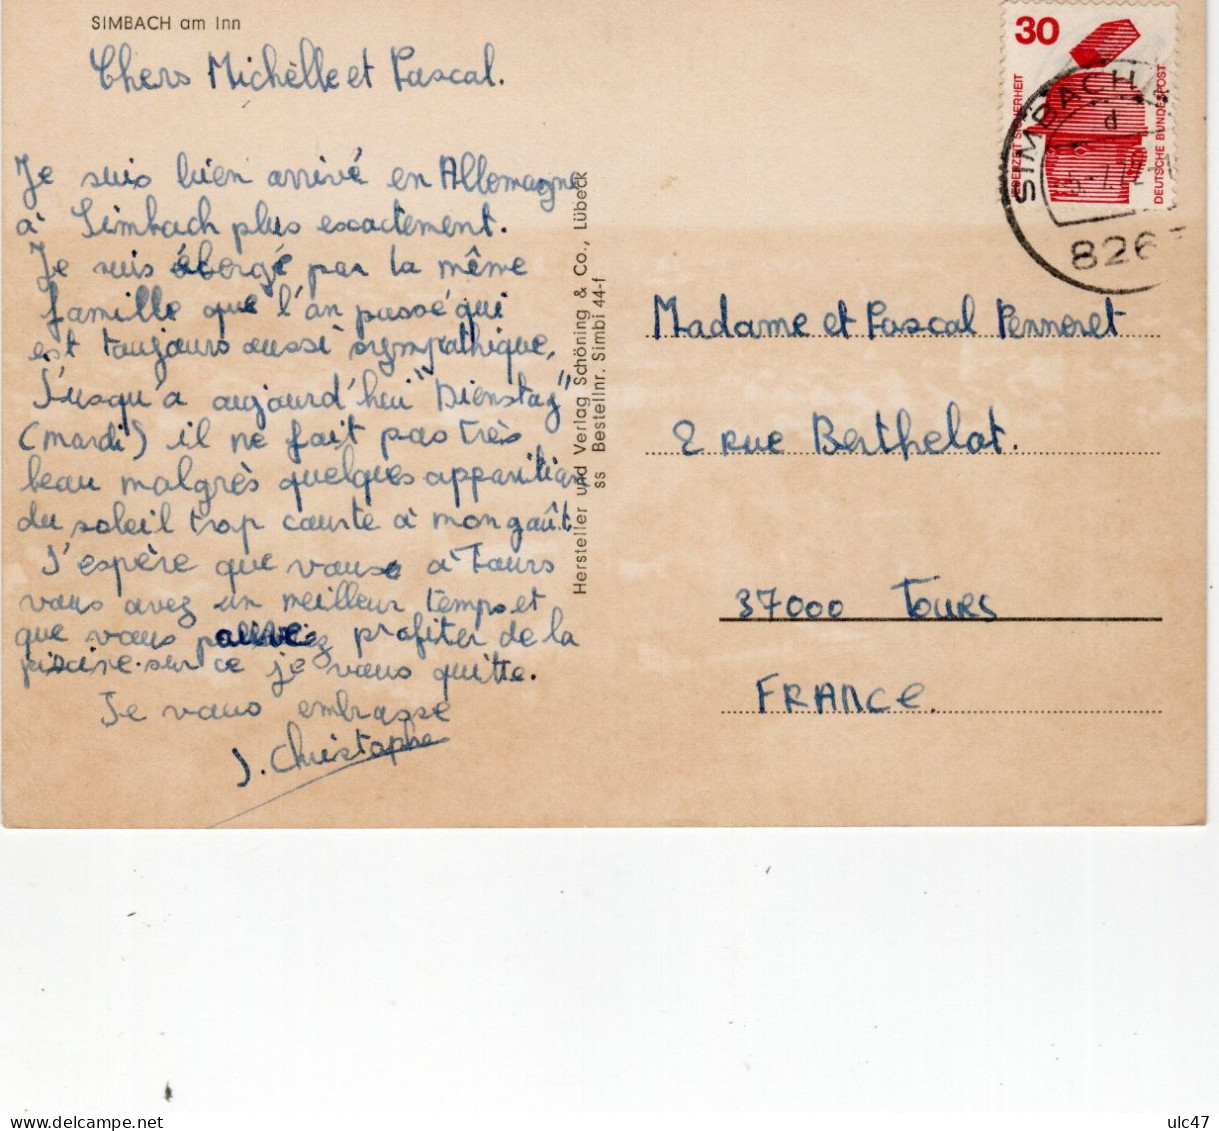 SIMBACH am Inn
Chers Michèlle et Pascal.
Je suis bien arrivé en Allemagne
à Simbach plus exactement.
Je suis ébergé par la même
famille que l'an passé qui
est toujours aussi sympathique,
Jusqu'a aujourd'hui "Dienstag"
(mardi) il ne fait pas très
beau malgrès quelques apparition
du soleil trop courte à mon goût.
J'espère que vous à Tours
vous avez un meilleur temps et
que vous profiter de la
piscine. sur ce je vous quitte.
Je vous embrasse
J. Christophe
Hersteller und Verlag Schöning & Co., Lübeck
ss Bestellnr. Simbi 44-f
30
JEDERZEIT SICHERHEIT
DEUTSCHE BUNDESPOST
SIMBACH
d
826
Madame et Pascal Penneret
2 rue Berthelot.
37000 Tours
FRANCE.
ulc47